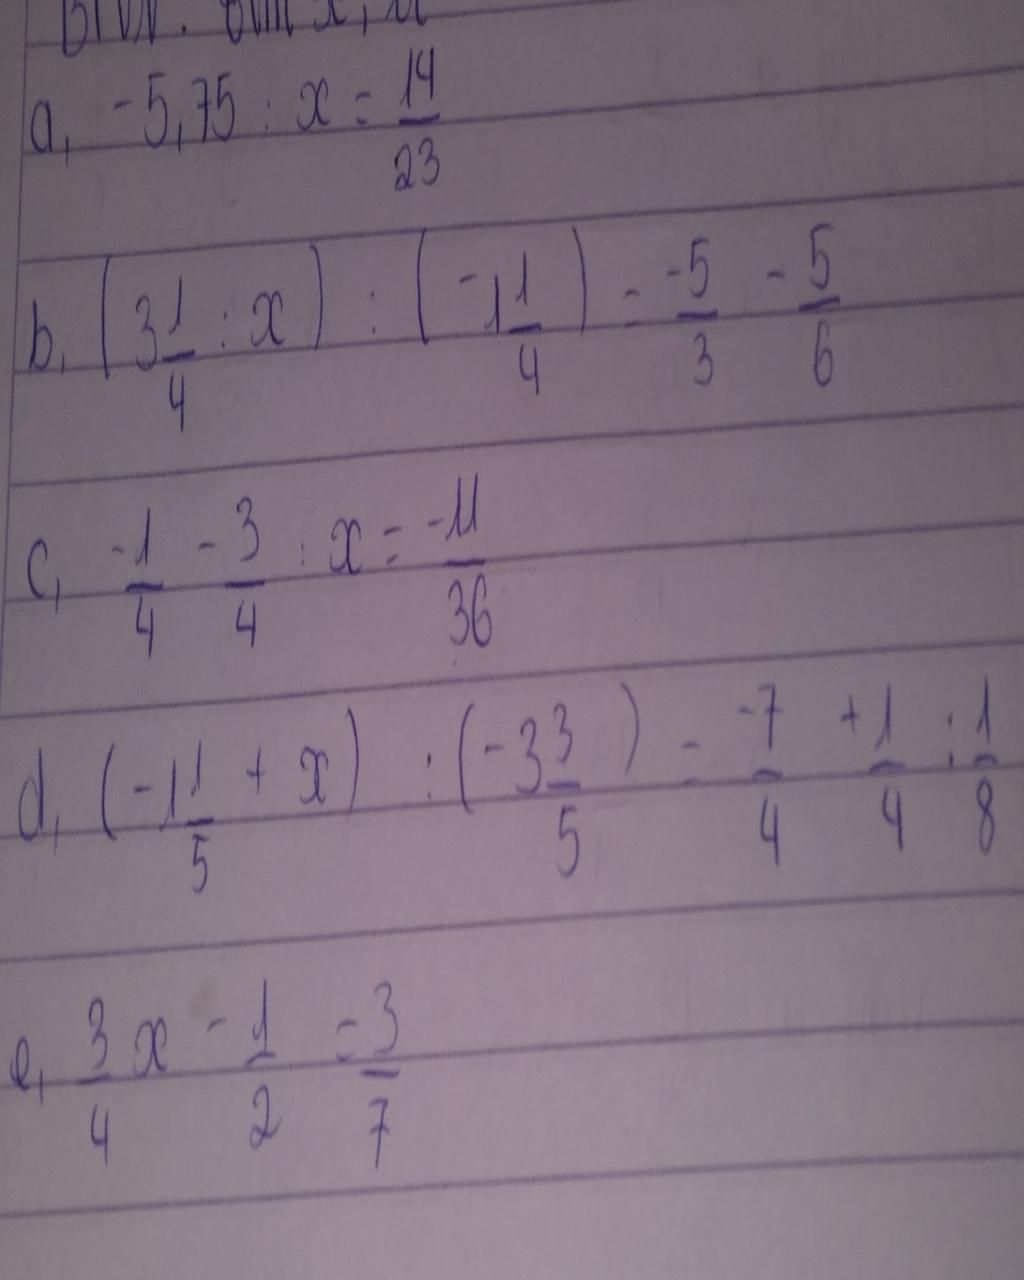 a, -5,75 : x = 14/23
b, (3 1/4 : x) : (-1 1/4) = -5/3 - 5/6
c, -1/4 - 3/4 : x = -11/36
d, (-1 1/5 + x) : (-3 3/5) = -7/4 + 1/4 : 1/8
e, 3/4 x - 1/2 = 3/7